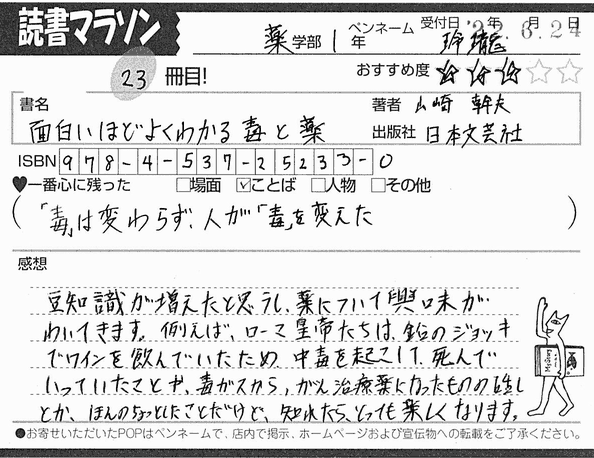 読書マラソン
薬学部 1年 ペンネーム 玲瓏 受付日 年 月 日
6.24
23 冊目! おすすめ度 ☆☆☆☆☆
書名 面白いほどよくわかる毒と薬
著者 山崎 幹夫
出版社 日本文芸社
ISBN 978-4-537-25233-0
♥一番心に残った □場面 ☑ことば □人物 □その他
(「毒」は変わらず、人が「毒」を変えた)
感想
豆知識が増えたと思うし、薬について興味が
わいてきます。例えば、ローマ皇帝たちは、鉛のジョッキ
でワインを飲んでいたため、中毒を起こして、死んで
いっていたことや、毒ガスから、がん治療薬になったものの話し
とか、ほんのちょっとしたことだけど、知れたら、とっても楽しくなります。
●お寄せいただいたPOPはペンネームで、店内で掲示、ホームページおよび宣伝物への転載をご了承ください。